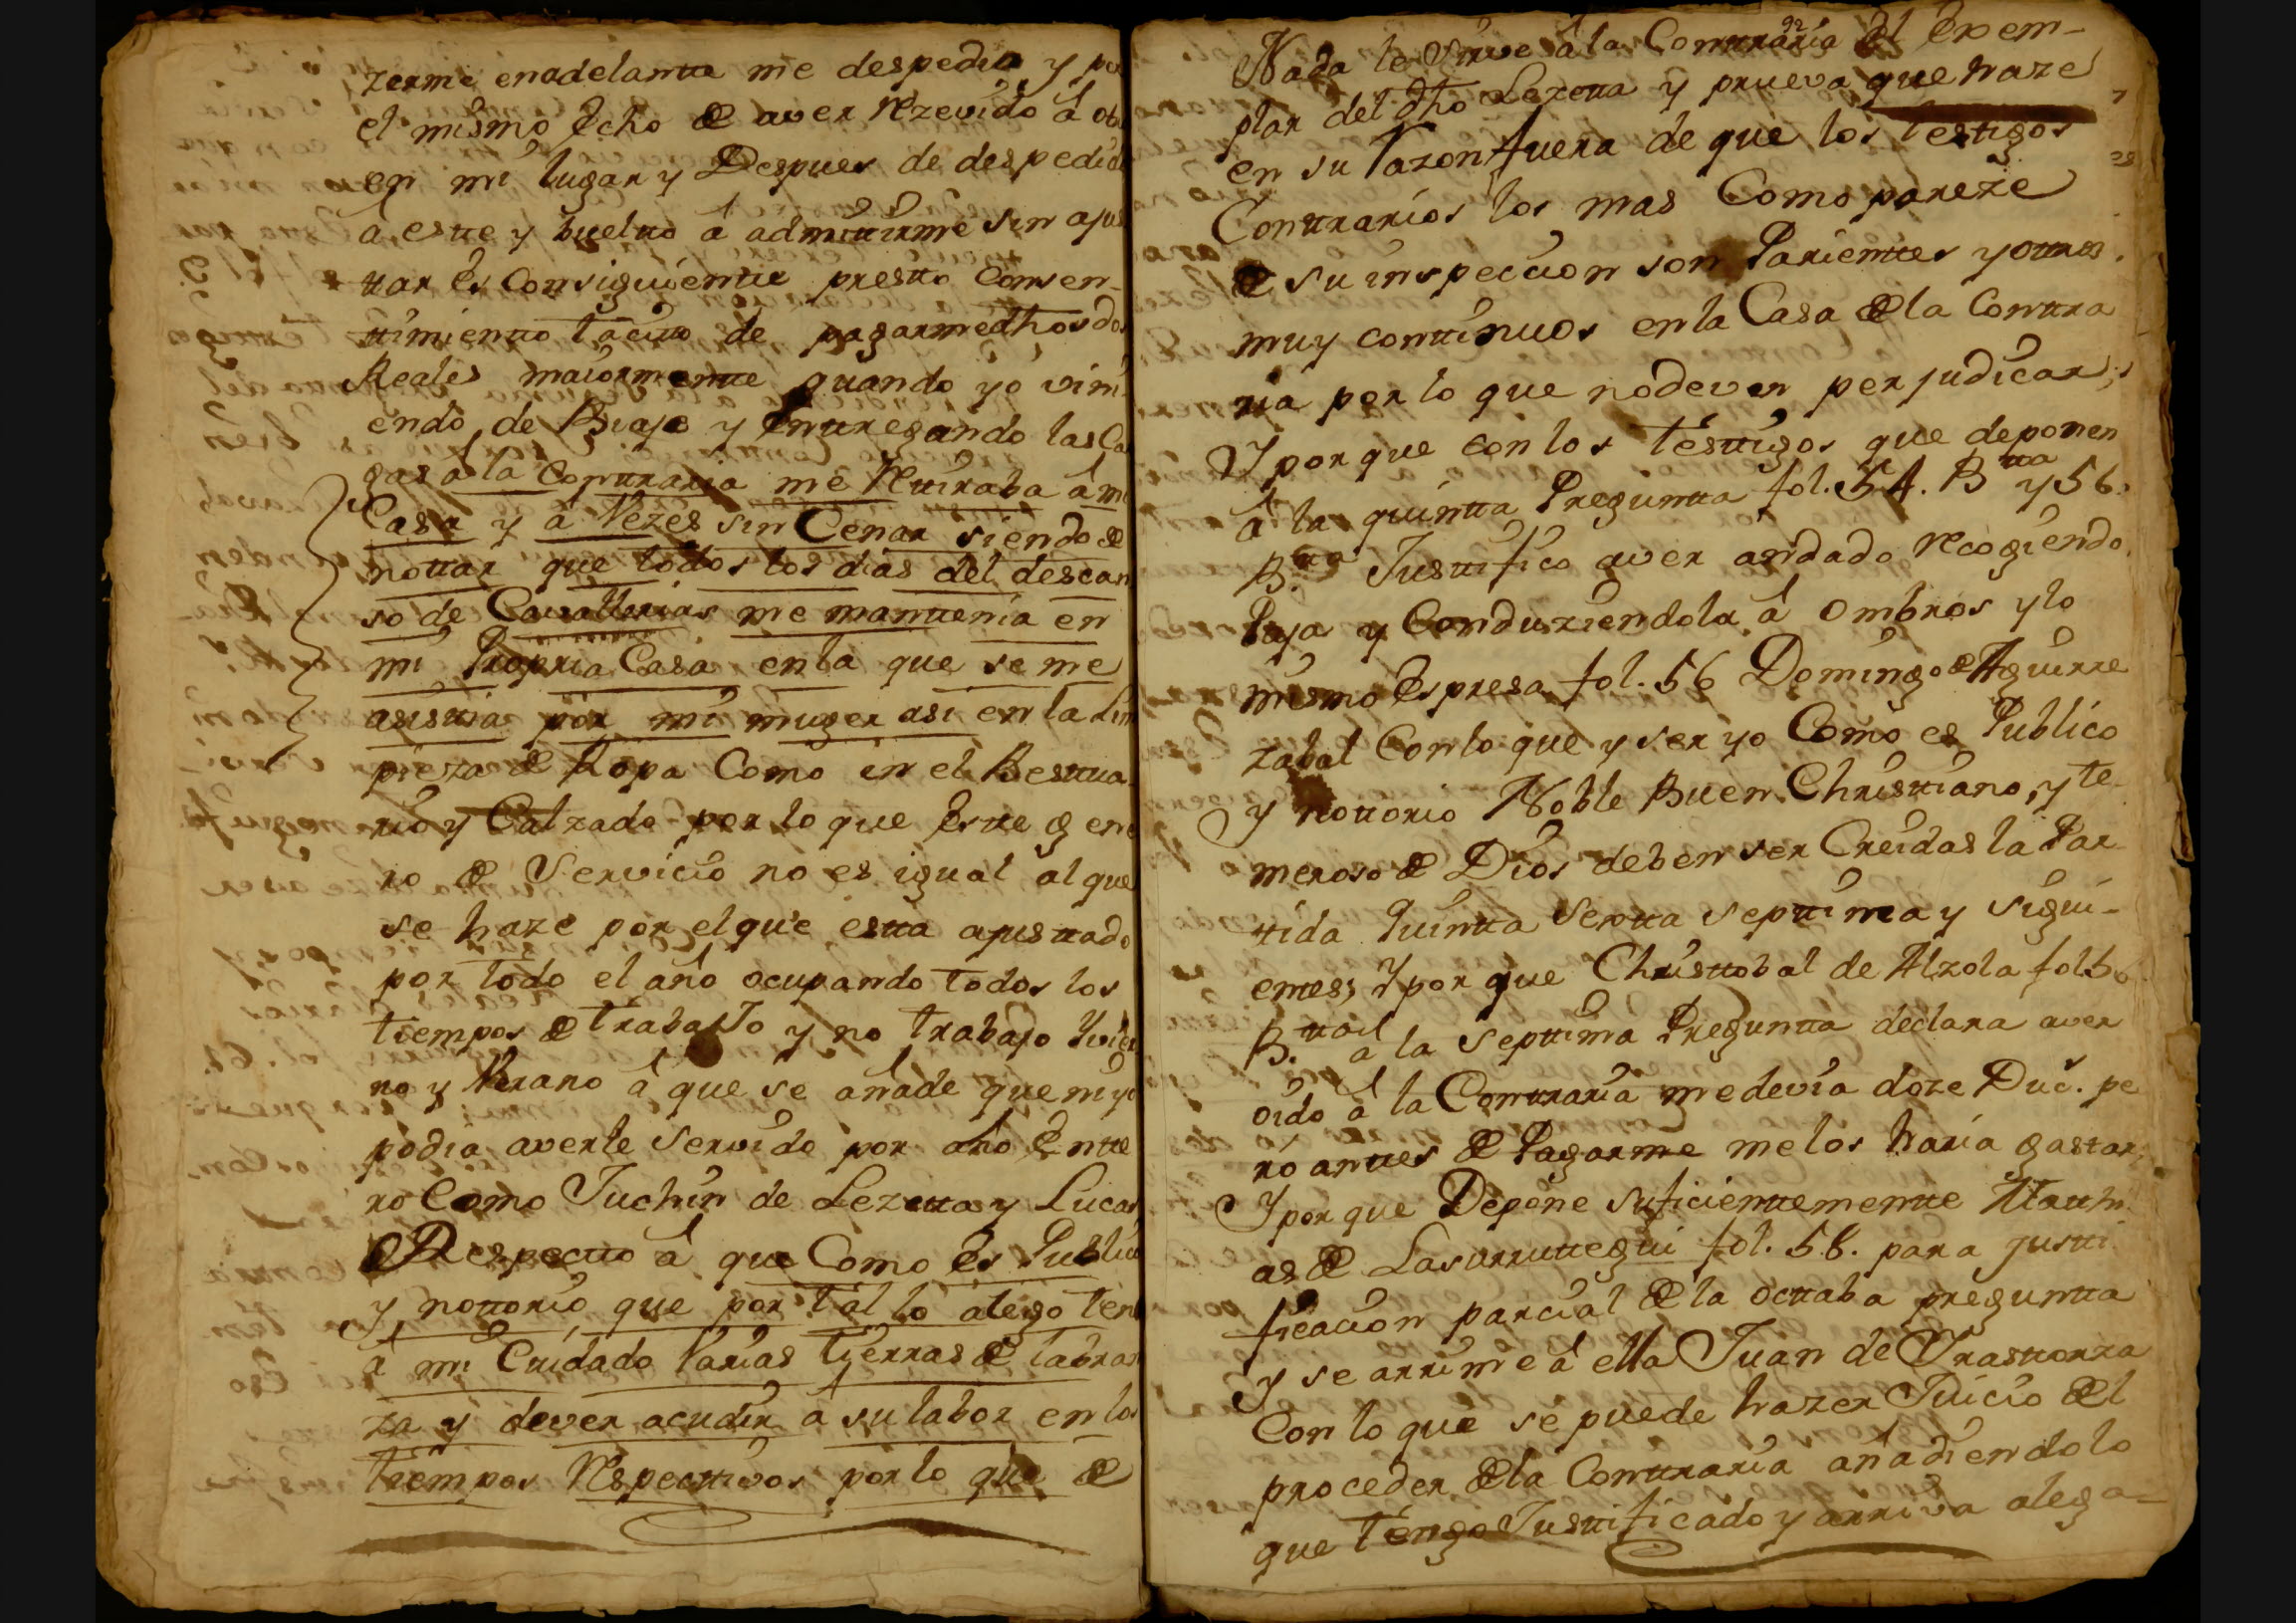 zerme enadelantte me despedia y po
el mismo Echo de aver Rezevido á ot
en mi lugar y Despues de despedid
a, estte y bueltto á admittirme sin ajus
ttar és Consiguientte prestto Consen-
ttimientto tácitto de pagarme dhos dos
Reales maiormentte quando yó vini
endo de Biaje y Enttregando las Ca
gas á la Conttraria me Rettiraba á mi
Casa y á Vezes sin Cenar siendo de
nottar que todos los dias del descan
so de Cavallerias me manttenia en
mi Propria Casa en la que se me
asisttia por mi muger asi en la Lim
pieza de Ropa Como in el Besttua
rio y Calzado por lo que Estte gene
ro de Servicio no es igual al que
se haze por el que estta ajusttado
por todo el año ocupando todos los
tiempos de trabaJo y no trabajo Yvier
no y Verano á que se añade que ni yo
podia averle Servido por año Entte
ro Como Juchin de Lezetta y Lucas
Respectto á que Como és Public
y nottorio, que por tál lo alego ten
á mi Cuidado Varias tierras de labran
za y dever acudir á su labor en los
tiempos Respecttivos por lo que de
92
Nada le Sirve á la Conttraria el Exem-
plar del dho Lezetta y prueva que haze
en su Razon fuera de que los testigos
Conttrarios los mas Como pareze
de su inspeccion son Parienttes y ottros
muy conttinuos en la Casa de la Conttra
ria por lo que no deven perjudicar;
Y por que con los testtigos que deponen
á la quintta Preguntta fol. 54. B.tta y 56.
B.tta Justtifico aver andado Recogiendo
Paja y Conduziendola á ombros y lo
mismo Espresa fol. 56 Domingo de Aguirre
zabal Con lo que y ser yo Como es Publico
y nottorio Noble Buen Christtiano, y te
meroso de Dios deben ser Creidas la Par
tida Quintta Sextta septtima y sigui-
entes; Y por que Christtobal de Alzola fol 56
B.tta á la septtima Preguntta declara aver
oido á la Conttraria me devia doze Duc.s pe
ro anttes de Pagarme me los haria gastar;
Y por que Depone suficienttementte Matthi
as de Lasurrutegui fol. 58. para justti
ficacion parcial de la octtaba preguntta
y se arrime á ella Juan de Yrasttorza
Con lo que se puede hazer Juicio del
proceder de la Conttraria añadiendo lo
que téngo Justtificado y arriva alega-